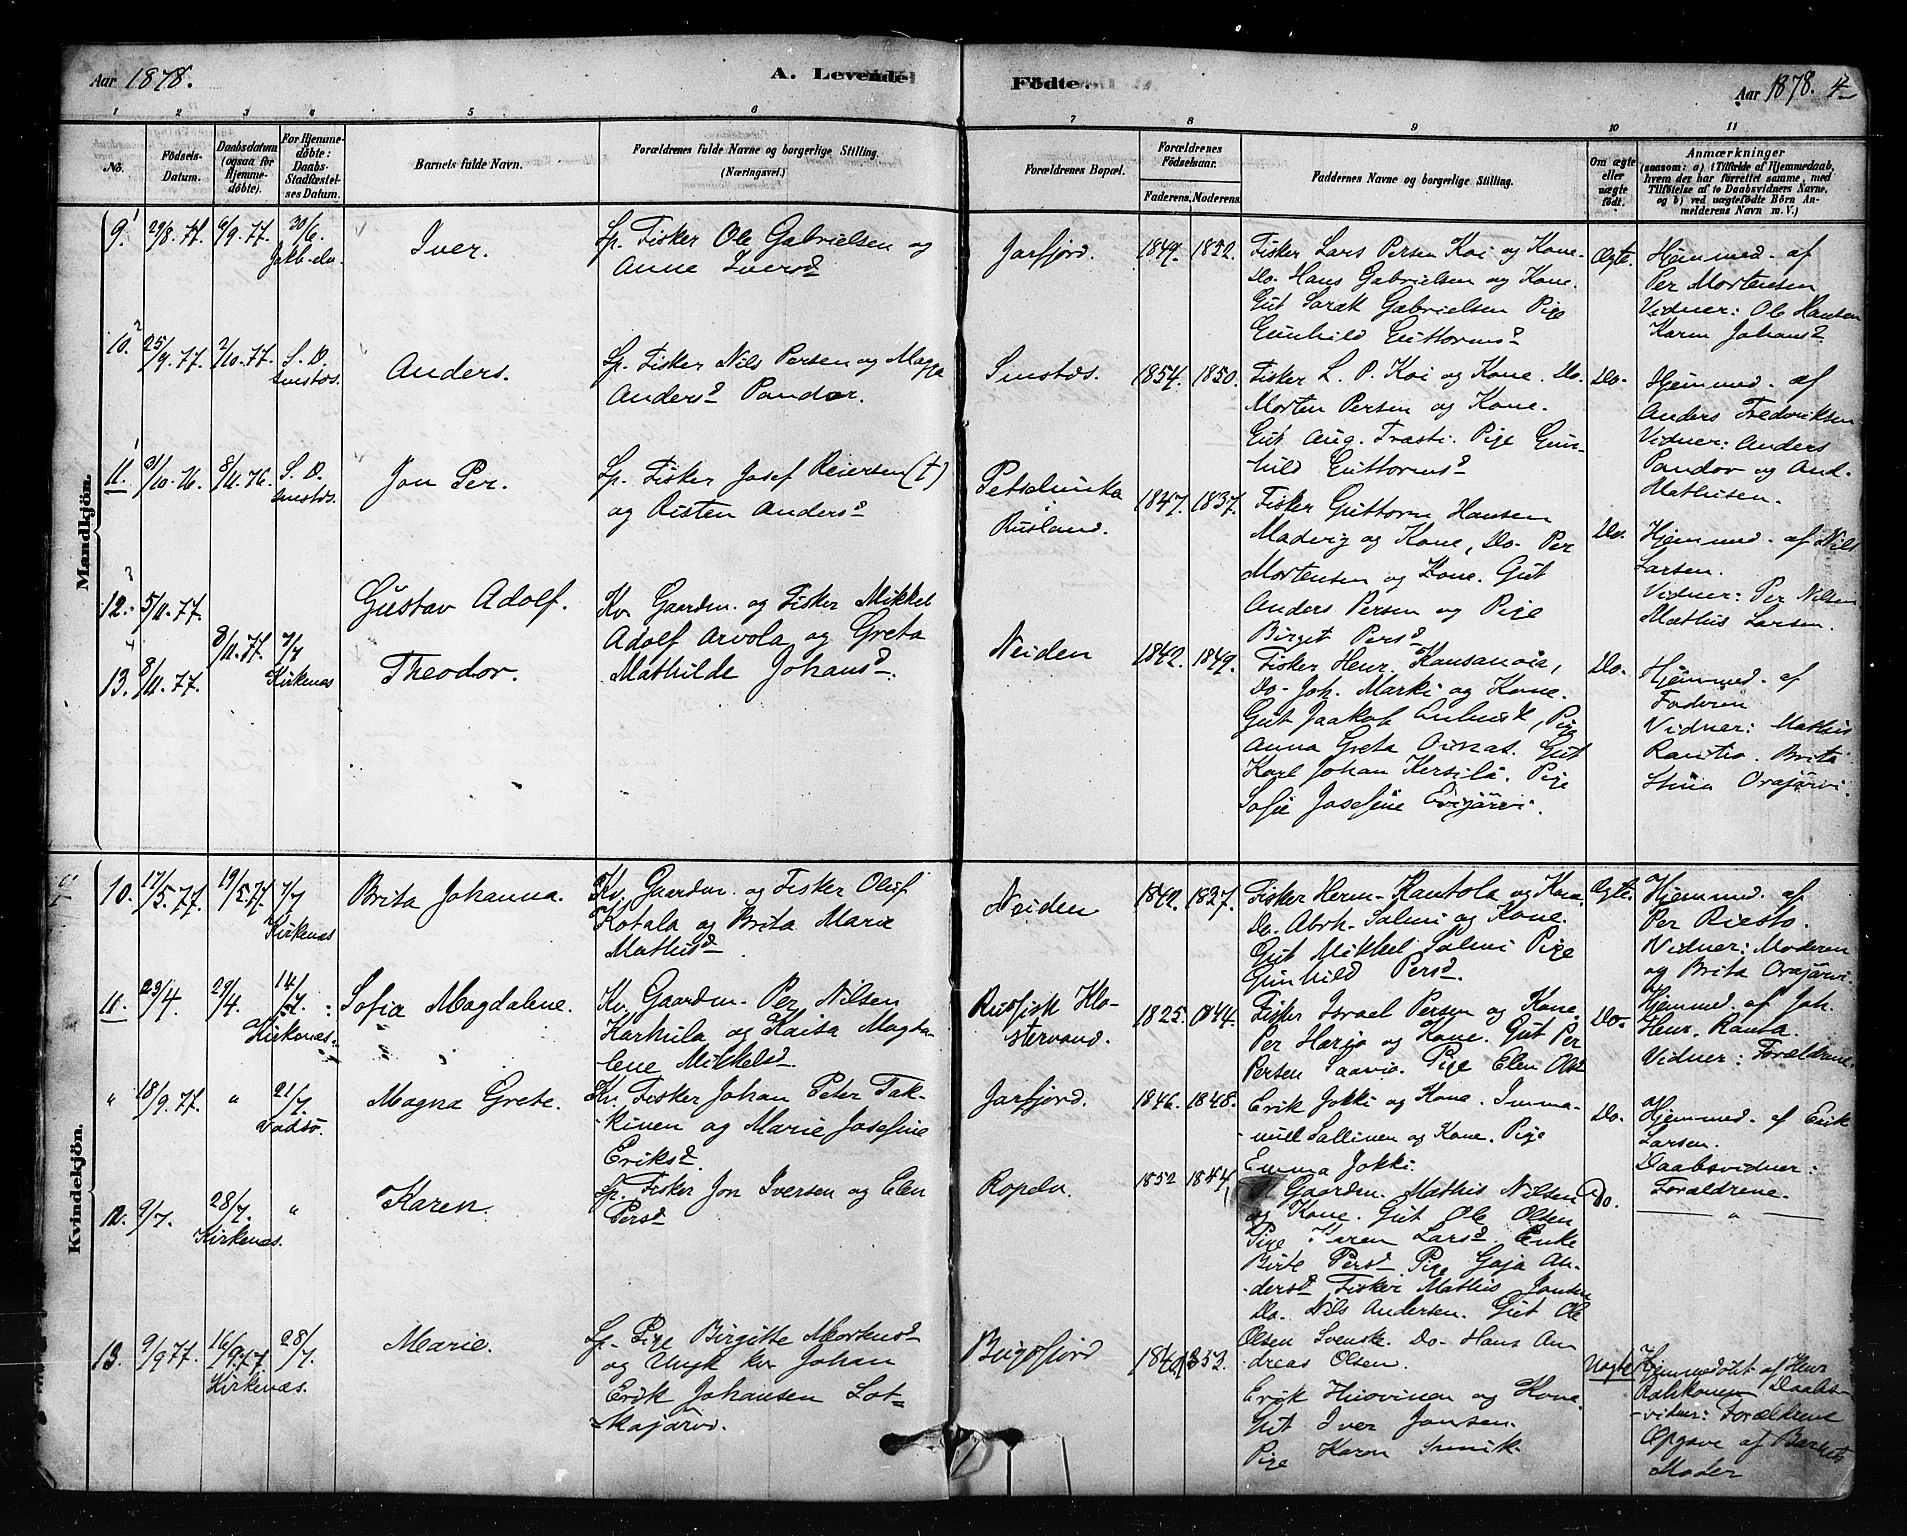 Aar 1878. A. Levende Födte. Aar 1878. 4
1 2 3 4 5 6 7 8 9 10 11
No. Födsels-Datum. Daabsdatum (ogsaa for Hjemmedöbte). For Hjemmedöbte: Daabs Stadfæstelses Datum. Barnets fulde Navn. Forældrenes fulde Navne og borgerlige Stilling (Næringsvei.) Forældrenes Bopæl. Forældrenes Födselsaar. Faderens. Moderens. Faddernes Navne og borgerlige Stilling. Om ægte eller uægte födt. Anmærkninger (saasom: a) i Tilfælde af Hjemmedaab, hvem der har forrettet samme, med Tilföielse af to Daabsvidners Navne, og b) ved uægtefödte Börn Anmelderens Navn m. V.)
Mandkjön.
9. 29/8. 77. 6/9. 77. 30/6. Iver. Lp. Fisker Ole Gabrielsen og
Anne Iversd
Jarfjord. 1849. 1852. Fisker Lars Persen Koi og Kone.
Do. Hans Gabrielsen og Kone.
Gut Sarak Gabrielsen Pige
Gunhild Guttormsd
Ægte. Hjemmed. af
Per Mortensen
Vidner: Ole Hansen
Karen Johansd
10. 25/9. 77. 2/10. 77. S. D. Anders. Lp. Fisker Nils Persen og Magga
Andersd Pandor.
1854. 1850. Fisker L. P. Koi og Kone. Do.
Morten Persen og Kone.
Gut Aug. Trasti. Pige Gun-
hild Guttormsd
Do. Hjemmed. af
Anders Fredriksen
Vidner: Anders
Pandor og And.
Mathisen.
11. 31/10. 76. 8/11. 76. S. D. Jon Per. Lp. Fisker Josef Reiersen (†)
og Risten Andersd
Rusland. 1847. 1837. Fisker Guttorm Hansen
og Kone, Do. Per
Mortensen og Kone. Gut
Anders Persen og Pige
Birget Persd
Do. Hjemmed. af Nils
Larsen.
Vidner: Per Nilsen
Mathis Larsen.
12. 5/11. 77. Gustav Adolf. Kv. Gaardm. og Fisker Mikkel
Adolf Arvola og Greta
Mathilde Johansd
13. 8/11. 77. 8/11. 77. 7/7 Kirkenæs Theodor.
Neiden 1842. 1849. Fisker Henr. Kansanois,
Do. Joh. Marki og Kone.
Gut Jaakob, Pige
Anna Greta Oinas. Gut
Karl Johan Kersilä. Pige
Sofie Josefine
Do. Hjemmed. af
Faderen
Vidner: Mathis
Rantio. Brita
Stina Orajärvi.
Kvindekjön.
10. 17/5. 77. 19/5. 77. 7/7 Kirkenæs Brita Johanna. Kv. Gaardm. og Fisker Oluf
Kotala og Brita Maria
Mathisd
Neiden 1842. 1827. Fisker Herm. Kantola og Kone
Do. Abrh. Salmi og Kone.
Gut Mikkel Salmi Pige
Gunhild Persd.
Ægte. Hjemmed. af
Per Riesto.
Vidner: Moderen
og Brita Orajärvi.
11. 23/4. 29/4. 14/7. Kirkenæs. Sofia Magdalene. Kv. Gaardm. Per Nilsen
Karhula og Kaisa Magda-
lene Mikkelsd
Russisk Klo-
stervand. 1825. 1844. Fisker Israel Persen og Kone.
Per Harjo og Kone. Gut Per
Persen Saavio. Pige Elen
Do. Hjemmed. af Joh.
Henr. Ranta.
Vidner: Forældrene
" 18/9. 77. " 21/7. Vadsö. Magna Grete. Kv. Fisker Johan Peter Tak-
kinen og Marie Josefine
Eriksd.
Jarfjord. 1846. 1848. Erik Jokki og Kone. Imma-
nuel Sallinen og Kone. Pige
Emma Jokki.
Do. Hjemmed. af Erik
Larsen.
Daabsvidner:
Forældrene.
12. 9/7. 28/7. Kirkenæs. " Karen. Lp. Fisker Jon Iversen og Elen
Persd
Ropelv. 1852 1844, Gaardm. Mathis Nilsen
og Kone. Gut Ole Olsen
Pige Karen Larsd. Enke
Birte Persd Pige Gaja An-
dersd Fisker Mathis Jonsen
Do. Nils Andersen. Gut Ole
Olsen Svenske. Do. Hans An
dreas Olsen.
Do. "
13. 9/9 77. 16/9 77. Kirkenæs. 28/7. Marie. Lp. Pige Birgitte Mortensd
og Ungk. kv. Johan
Erik Johansen Lot-
kajärvi.
Bugöfjord Erik Huovinen og Kone.
Gut Iver Jonsen.
Pige Karen
Uægte Hjemmedöbt af Henr.
Daabs-
vidner: Forældrene
Opgave af Barnets
Moder